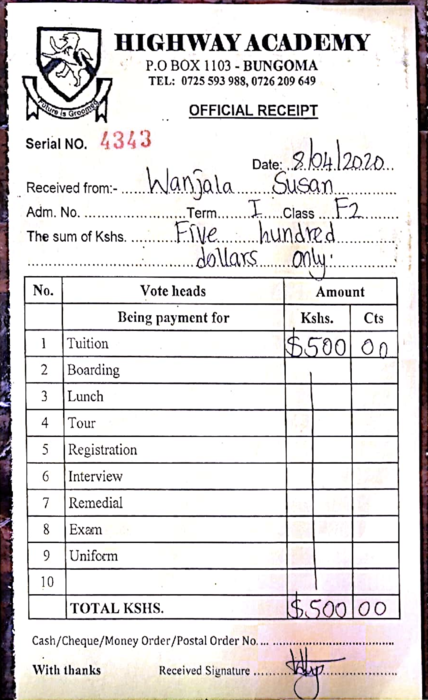 HIGHWAY ACADEMY
P.O BOX 1103 - BUNGOMA
TEL: 0725 593 988, 0726 209 649
Future is Groomed
OFFICIAL RECEIPT
Serial NO. 4343
Date: 8/04/2020
Received from:- Wanjala Susan
Adm. No. .................... Term I Class F2
The sum of Kshs. Five hundred
dollars only:
No. Vote heads Amount
Being payment for Kshs. Cts
1 Tuition $500 00
2 Boarding
3 Lunch
4 Tour
5 Registration
6 Interview
7 Remedial
8 Exam
9 Uniform
10
TOTAL KSHS. $500 00
Cash/Cheque/Money Order/Postal Order No. ..................................
With thanks Received Signature ..................